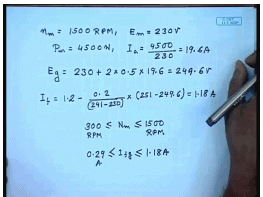 n_m = 1500 RPM, E_m = 230V
P_m = 4500W, I_a = 4500/230 = 19.6A
E_g = 230 + 2×0.5×19.6 = 249.6V
I_f = 1.2 - 0.2/(241-230) × (251-249.6) = 1.18A
300 ≤ N_m ≤ 1500
RPM RPM
0.29 ≤ I_fg ≤ 1.18A
A